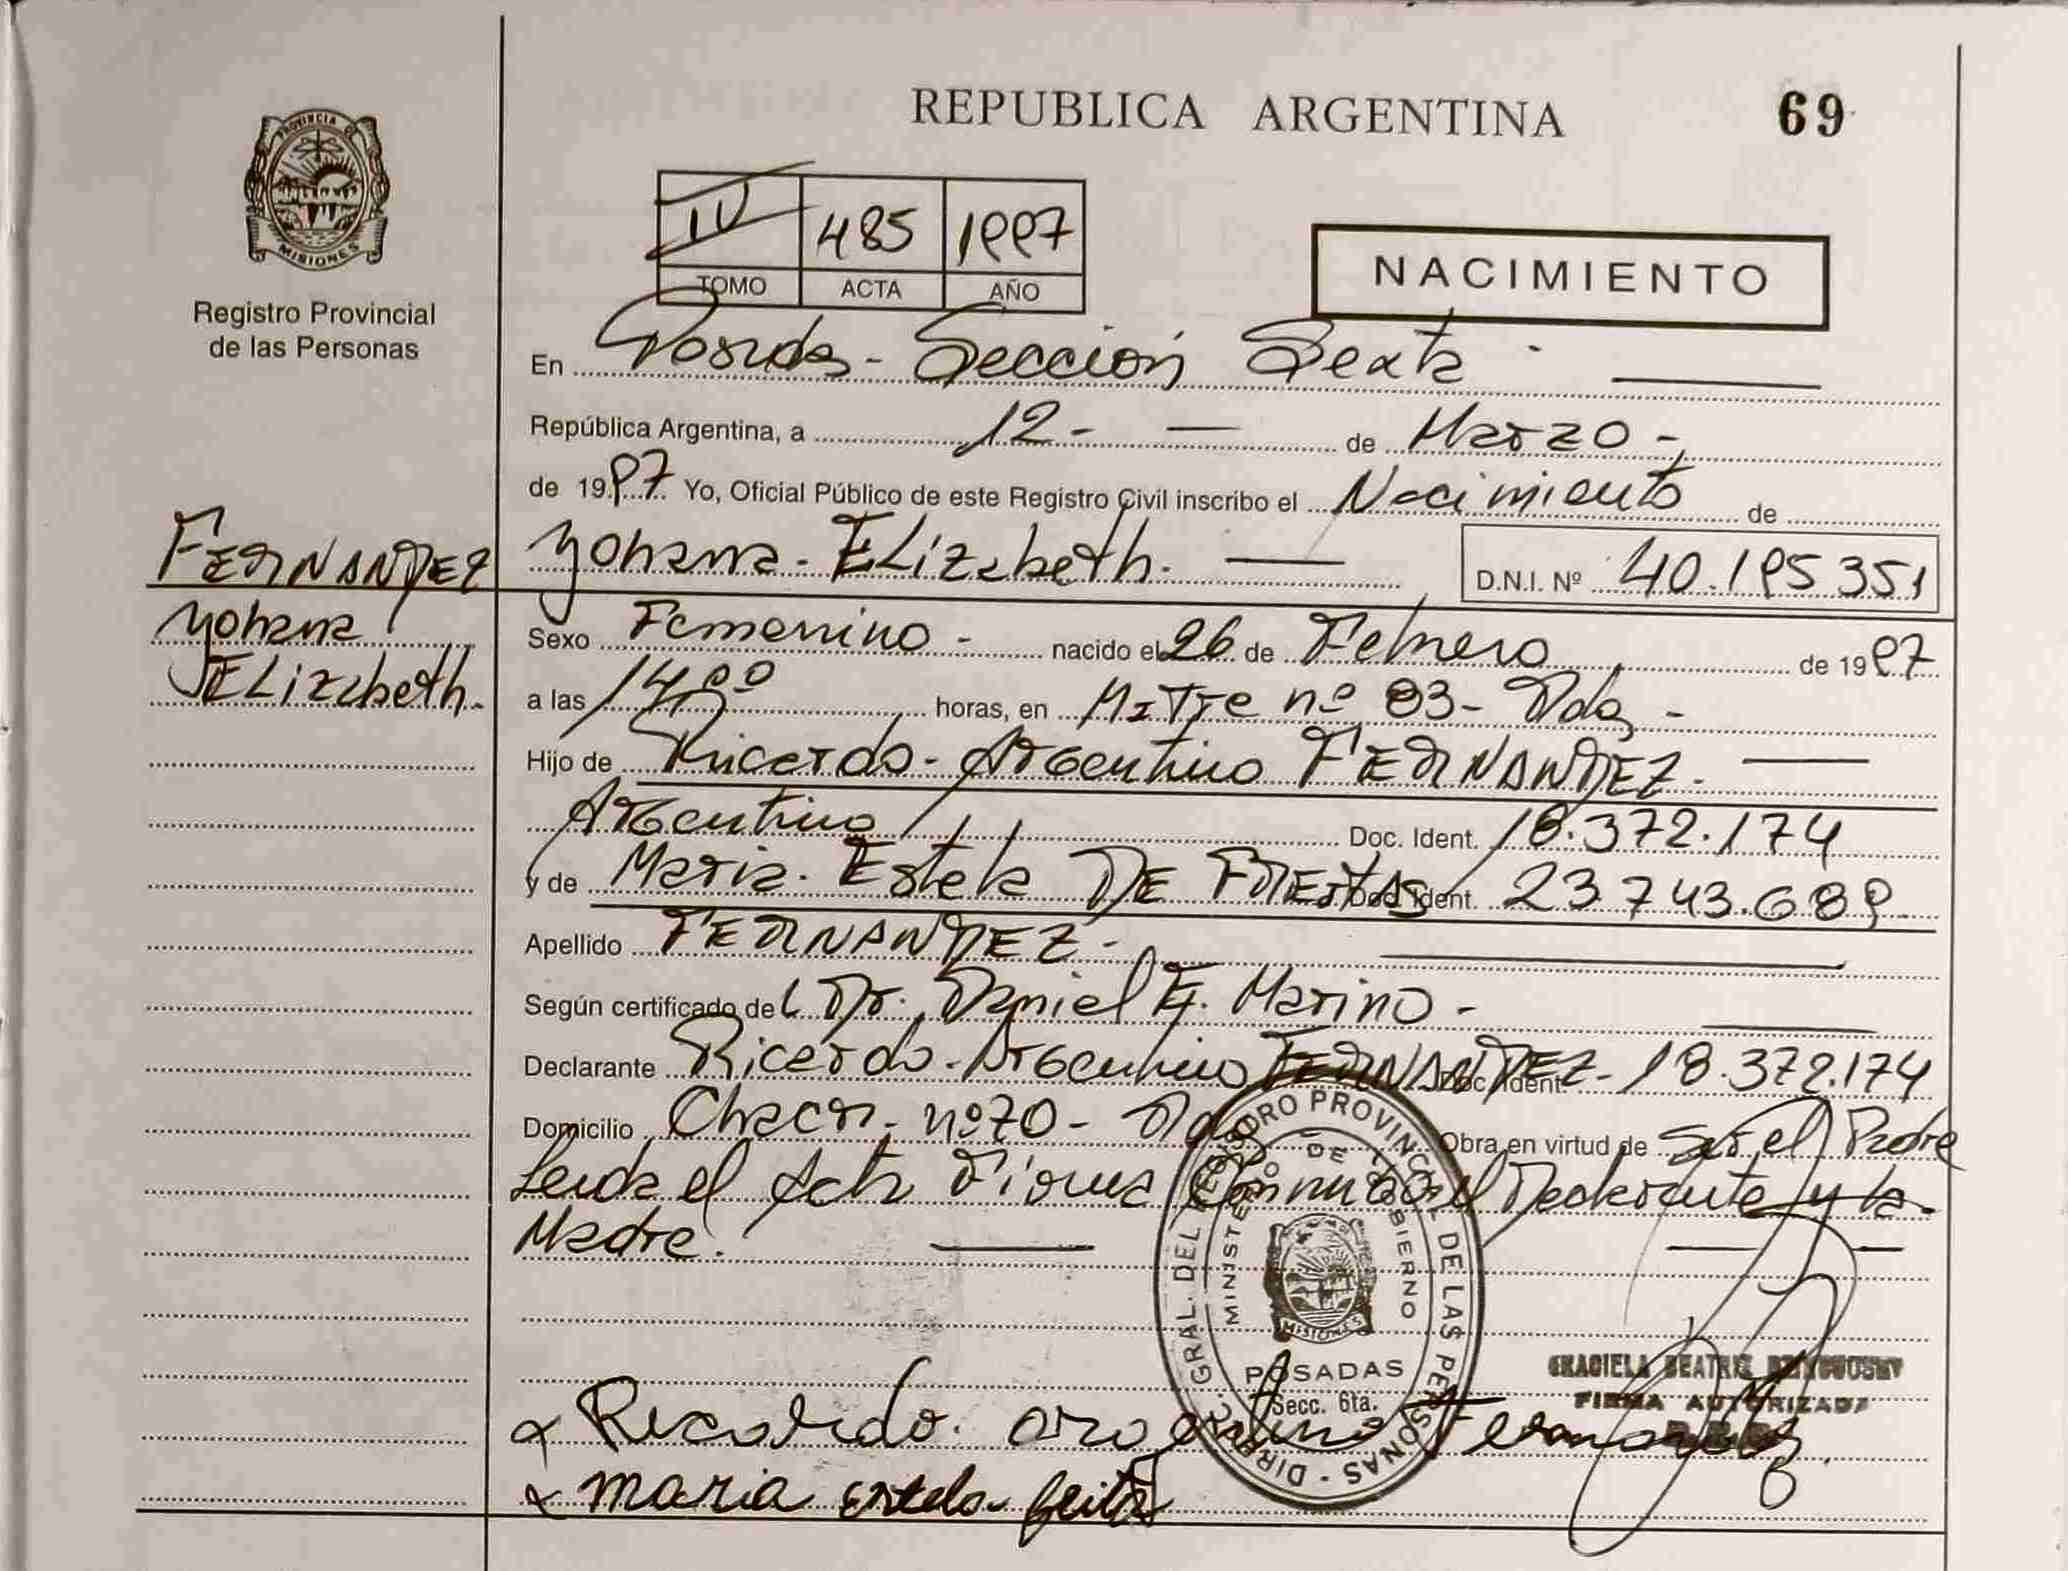 PROVINCIA DE
MISIONES
Registro Provincial
de las Personas
REPUBLICA ARGENTINA
69
IV 485 1997
TOMO ACTA AÑO
NACIMIENTO
En Posadas - Sección Sexta -
República Argentina, a 12 - de Marzo -
de 1997 Yo, Oficial Público de este Registro Civil inscribo el Nacimiento de
FERNANDEZ
Yohana
ELizabeth.
Yohana - ELizabeth. D.N.I. Nº 40.195.351
Sexo Femenino - nacido el 26 de Febrero de 1997
a las 14,00 horas, en Mitre nº 83 - Pdas -
Hijo de Ricardo - Argentino FERNANDEZ -
Argentino Doc. Ident. 18.372.174
y de Maria - Estela DE FREITAS Doc. Ident. 23.743.689
Apellido FERNANDEZ -
Según certificado del Dr. Daniel E. Marino -
Declarante Ricardo - Argentino FERNANDEZ - Doc. Ident. 18.372.174
Domicilio Chacra - nº 70 - Obra en virtud de ser el Padre
Leida el Acta Firma Conmigo el Declarante y la
Madre.
DIREC. GRAL. DEL REGISTRO PROVINCIAL DE LAS PERSONAS
MINISTERIO DE GOBIERNO
MISIONES
POSADAS
Secc. 6ta.
GRACIELA BEATRIZ
FIRMA AUTORIZADA
Ricardo. argentino Fernandez
maria estela freitas